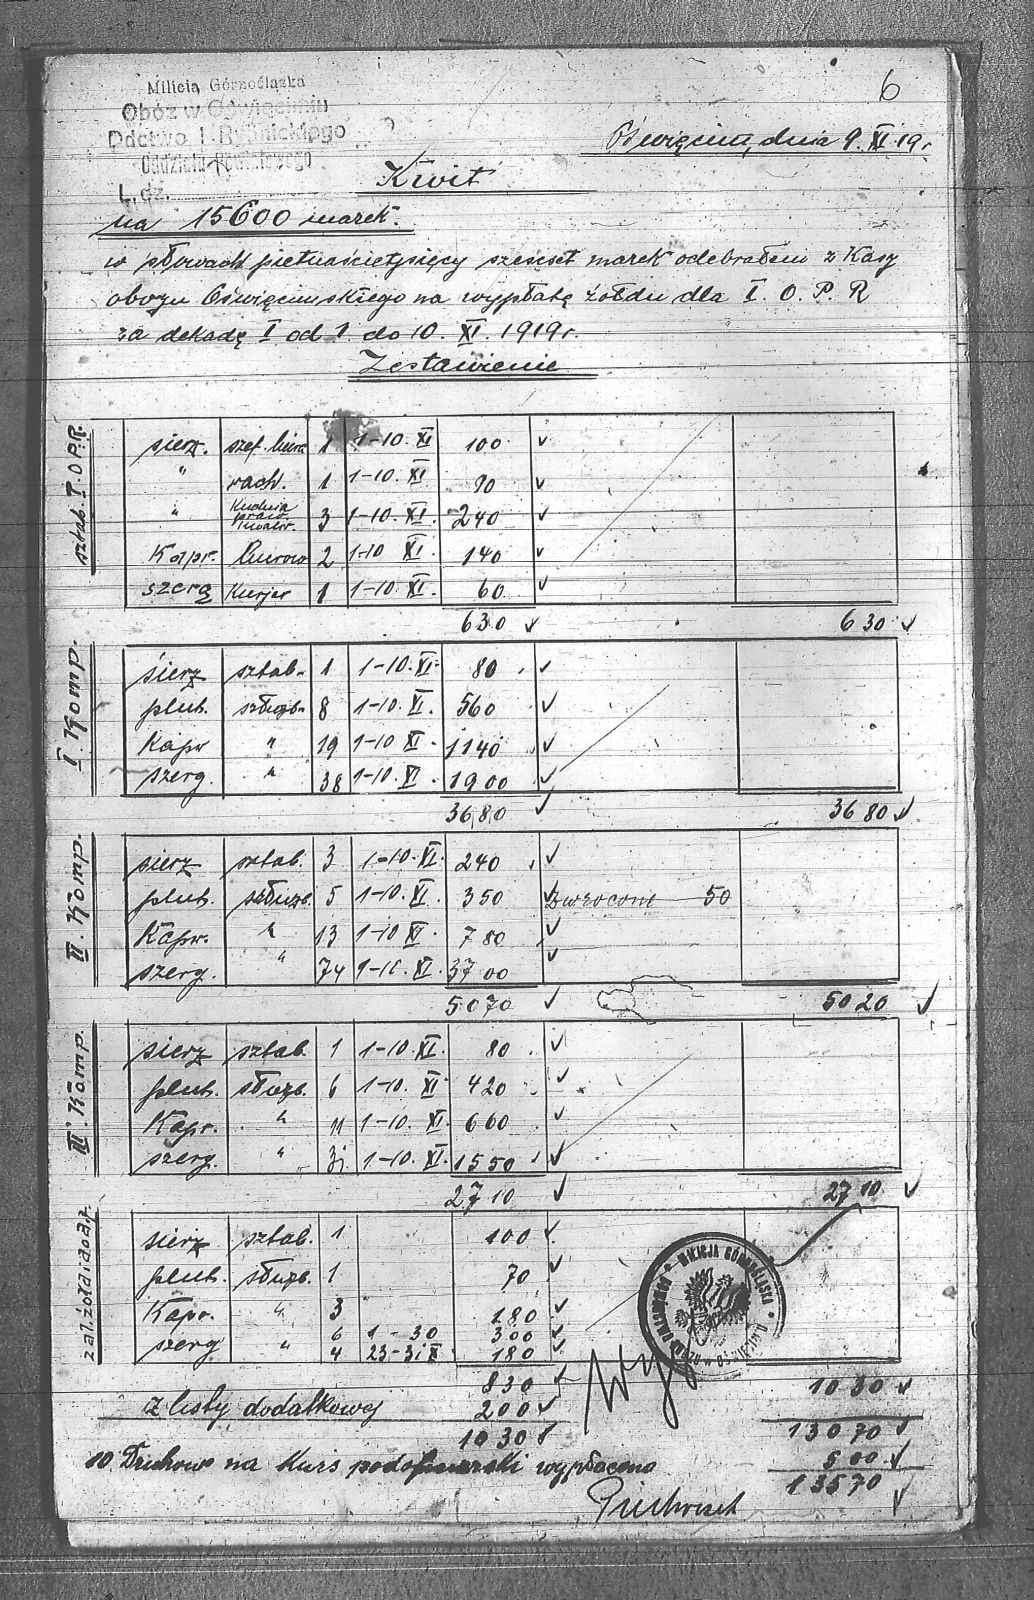 6
Milicja Górnośląska
Obóz w Oświęcimiu
Ddctwo I. Rybnickiego
Oddziału Powiatowego
L. dz.
Oświęcim, dnia 9. XI 19 r.
Kwit
na 15600 marek.
w słowach pietnaścietysięcy sześcset marek odebrałem z Kasy
obozu Oświęcimskiego na wypłatę żołdu dla I. O. P. R
za dekadę I od 1 do 10. XI. 1919 r.
Zestawienie
sztab. I. O P. R.
sierż. szef. biura 1 1-10. XI 100
" rach. 1 1-10. XI 90
" 3 1-10. XI. 240
Kapr. 2 1-10 XI. 140
szerg Kurjer 1 1-10. XI. 60
630 630
I. Komp.
sierż sztab. 1 1-10. XI. 80
plut. służb. 8 1-10. XI. 560
Kapr " 19 1-10 XI. 1140
szerg. " 38 1-10. XI 1900
3680 3680
II. Komp.
sierż sztab. 3 1-10. XI. 240
plut. służb. 5 1-10. XI. 350 zwrocono 50
Kapr. " 13 1-10 XI. 780
szerg. " 74 1-10. XI. 3700
5070 5020
III. Komp.
sierż sztab. 1 1-10. XI. 80
plut. służb. 6 1-10. XI. 420
Kapr. " 11 1-10. XI. 660
szerg. " 31 1-10. XI. 1550
2710 2710
zal. żołd i dod.
sierż sztab. 1 100
plut. służb. 1 70
Kapr. " 3 180
szerg " 6 1-30 300
4 23-31 X 180
MILICJA GÓRNOŚLĄSKA
830 1030
z listy dodatkowej 200
1030 13070
10 Druhow na Kurs podoficerski wypłacono 500
13570